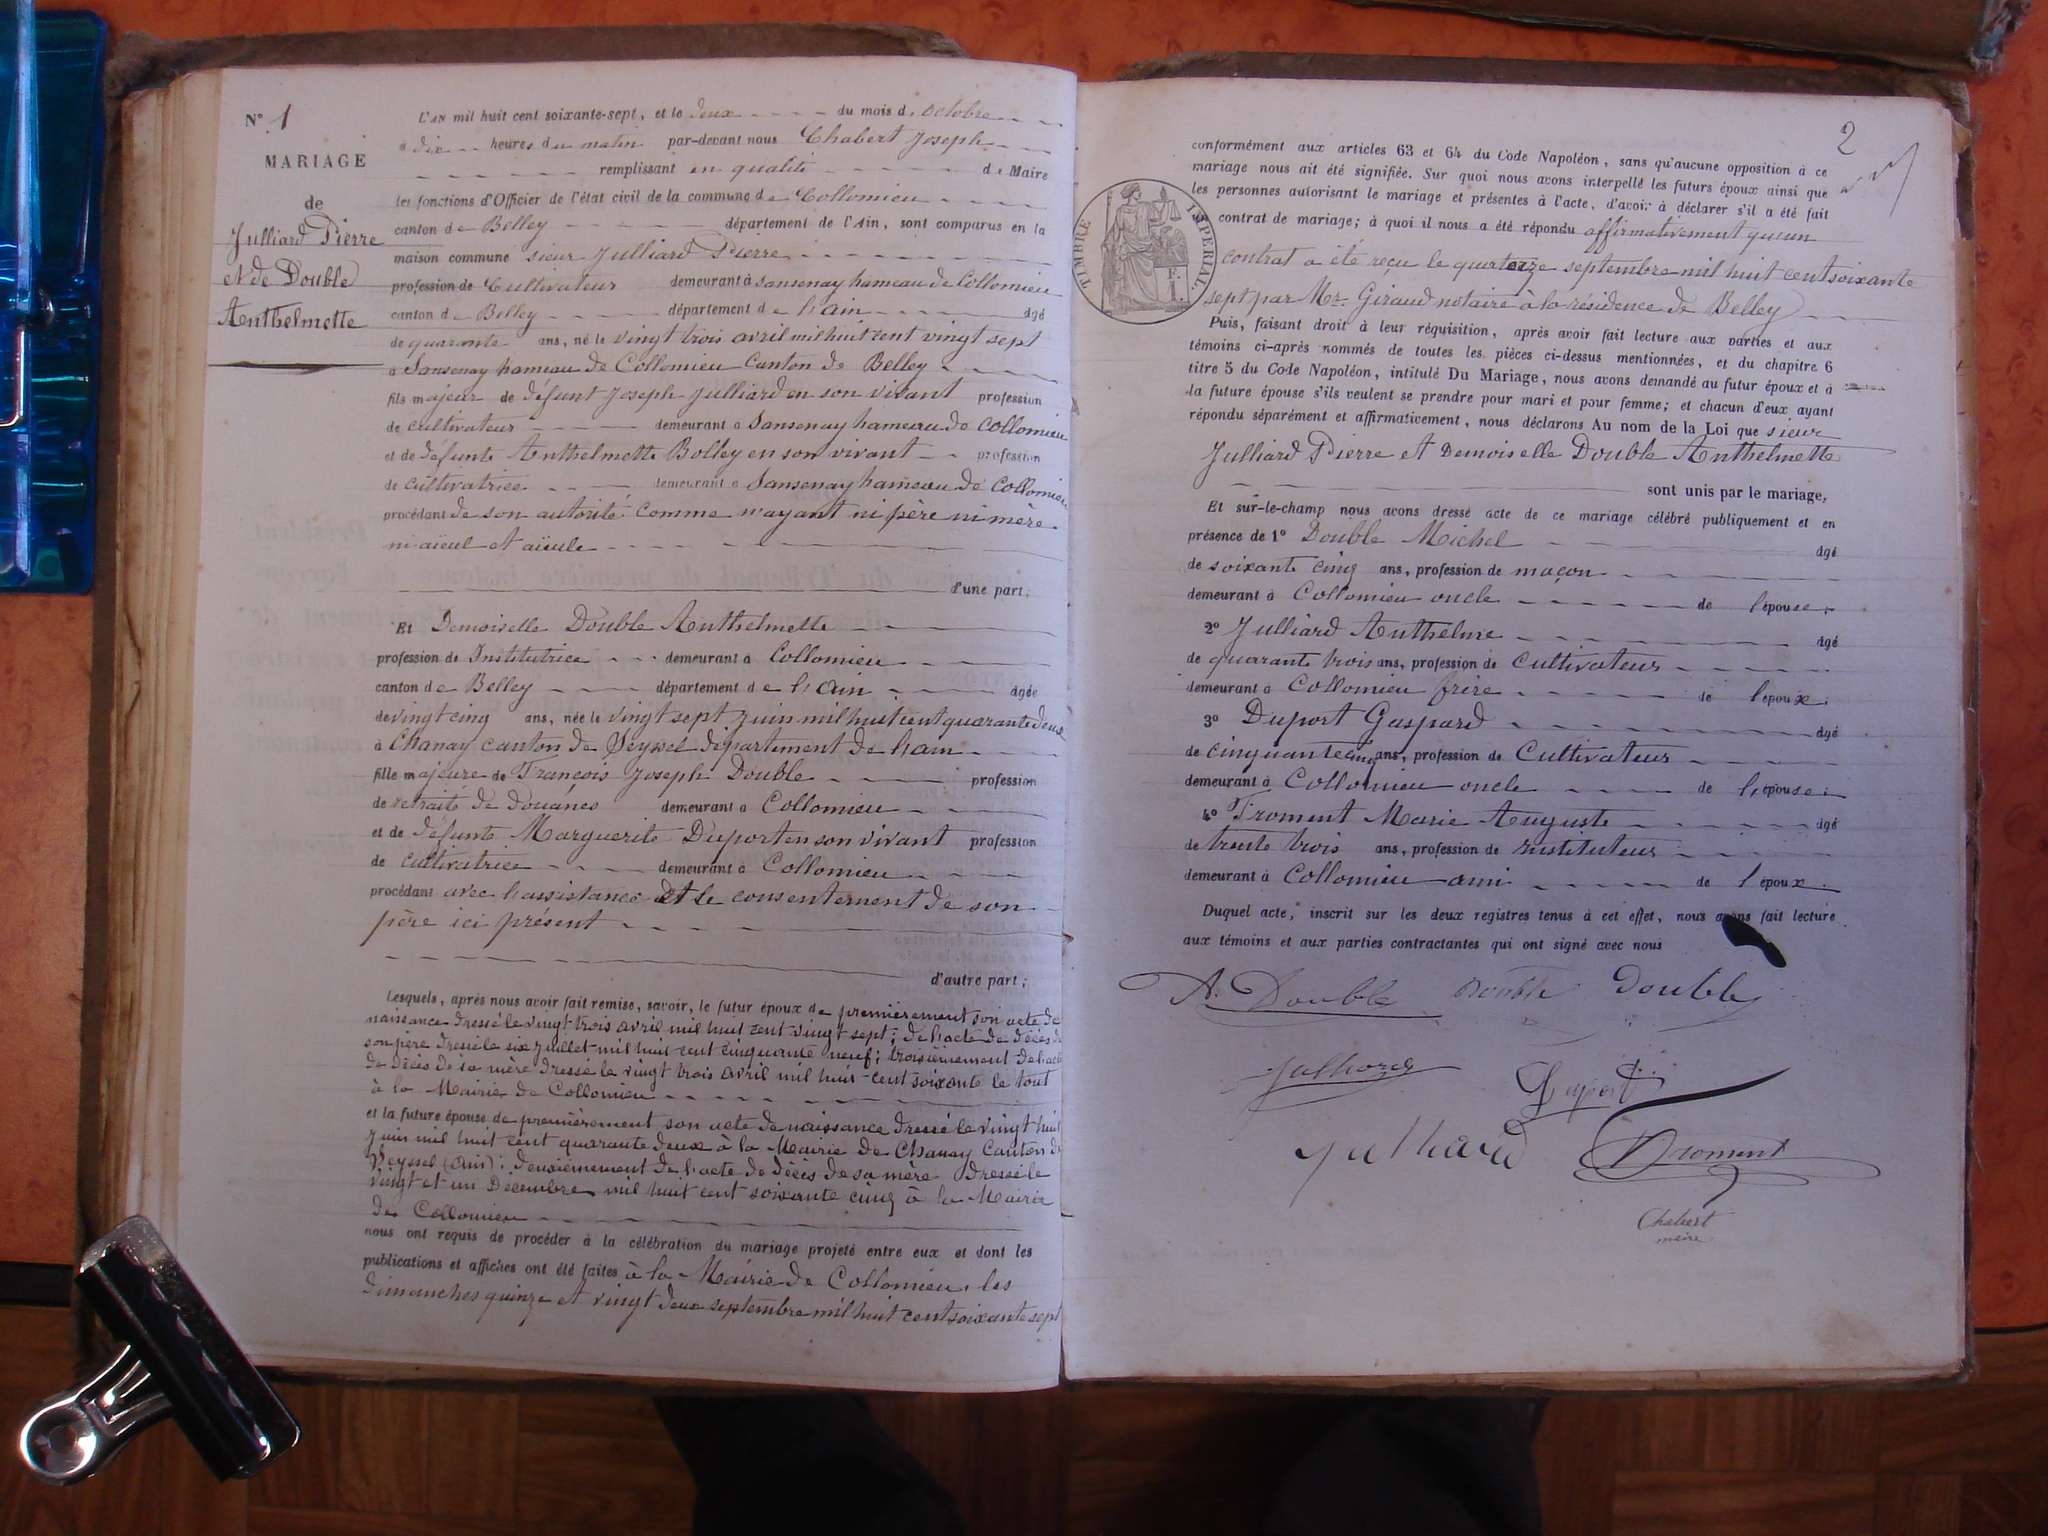 N° 1
MARIAGE
de
Julliard Pierre
et de Double
Anthelmette
L'AN mil huit cent soixante-sept, et le deux du mois d. octobre
à dix heures du matin par-devant nous Chabert Joseph
remplissant en qualité de Maire
les fonctions d'Officier de l'état civil de la commune de Collomieu
canton de Belley département de l'Ain, sont comparus en la
maison commune sieur Julliard Pierre
profession de Cultivateur demeurant à Sansenay hameau de Collomieu
canton de Belley département de l'ain âgé
de quarante ans, né le vingt trois avril mil huit cent vingt sept
à Sansenay hameau de Collomieu Canton de Belley
fils majeur de défunt Joseph Julliard en son vivant profession
de cultivateur demeurant à Sansenay hameau de Collomieu
et de défunte Anthelmette Bolley en son vivant profession
de cultivatrice demeurant à Sansenay hameau de Collomieu
procédant de son autorité comme n'ayant ni père ni mère
ni aïeul et aïeule
d'une part;
Et Demoiselle Double Anthelmette
profession de Institutrice demeurant à Collomieu
canton de Belley département de l'ain âgée
de vingt cinq ans, née le vingt sept Juin mil huit cent quarante deux
à Chanay canton de Seyssel département de l'ain
fille majeure de François Joseph Double profession
de retraité de douanes demeurant à Collomieu
et de défunte Marguerite Duport en son vivant profession
de cultivatrice demeurant à Collomieu
procédant avec l'assistance et le consentement de son
père ici présent
d'autre part;
Lesquels, après nous avoir fait remise, savoir, le futur époux de premièrement son acte de
naissance dressé le vingt trois avril mil huit cent vingt sept; de l'acte de décès de
son père dressé le six Juillet mil huit cent cinquante neuf; troisièmement de l'acte
de décès de sa mère dressé le vingt trois avril mil huit cent soixante le tout
à la Mairie de Collomieu
et la future épouse de premièrement son acte de naissance dressé le vingt huit
Juin mil huit cent quarante deux à la Mairie de Chanay Canton de
Seyssel (ain); deuxièmement de l'acte de décès de sa mère dressé le
vingt et un Décembre mil huit cent soixante cinq à la Mairie
de Collomieu
nous ont requis de procéder à la célébration du mariage projeté entre eux et dont les
publications et affiches ont été faites à la Mairie de Collomieu les
dimanches quinze et vingt deux septembre mil huit cent soixante sept
2
TIMBRE IMPERIAL
conformément aux articles 63 et 64 du Code Napoléon, sans qu'aucune opposition à ce
mariage nous ait été signifiée. Sur quoi nous avons interpellé les futurs époux ainsi que
les personnes autorisant le mariage et présentes à l'acte, d'avoir à déclarer s'il a été fait
contrat de mariage; à quoi il nous a été répondu affirmativement qu'un
contrat a été reçu le quatorze septembre mil huit cent soixante
sept par Mr. Giraud notaire à la résidence de Belley
Puis, faisant droit à leur réquisition, après avoir fait lecture aux parties et aux
témoins ci-après nommés de toutes les pièces ci-dessus mentionnées, et du chapitre 6
titre 5 du Code Napoléon, intitulé Du Mariage, nous avons demandé au futur époux et à
la future épouse s'ils veulent se prendre pour mari et pour femme; et chacun d'eux, ayant
répondu séparément et affirmativement, nous déclarons Au nom de la Loi que sieur
Julliard Pierre et Demoiselle Double Anthelmette
sont unis par le mariage.
Et sur-le-champ nous avons dressé acte de ce mariage célébré publiquement et en
présence de 1° Double Michel âgé
de soixante cinq ans, profession de maçon
demeurant à Collomieu oncle de l'épouse;
2° Julliard Anthelme âgé
de quarante trois ans, profession de Cultivateur
demeurant à Collomieu frère de l'époux;
3° Duport Gaspard âgé
de cinquante cinq ans, profession de Cultivateur
demeurant à Collomieu oncle de l'épouse;
4° Froment Marie Auguste âgé
de trente trois ans, profession de Instituteur
demeurant à Collomieu ami de l'époux.
Duquel acte, inscrit sur les deux registres tenus à cet effet, nous avons fait lecture
aux témoins et aux parties contractantes qui ont signé avec nous
A. Double Double Double
Duport
Julliard Froment
Chabert
maire